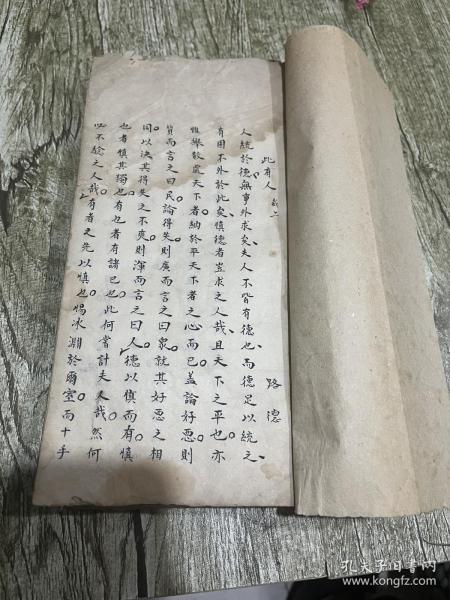 此有人 路德
人統於德無事外求矣夫人不皆有德也而德足以統之
有國不外於此矣慎德者豈求之人哉且天下之平也亦
惟舉教處天下者納於平天下者之心而已蓋論好惡則
質而言之曰民論得失則廣而言之曰眾就其好惡之相
同以決其得失之不爽則渾而言之曰人德以慎而有慎
也者慎其獨也有也者有諸己也此何嘗計夫人哉然何
以不驗之人哉有者之先以慎也惕冰淵於爾室而十手
孔夫子旧书网
www.kongfz.com